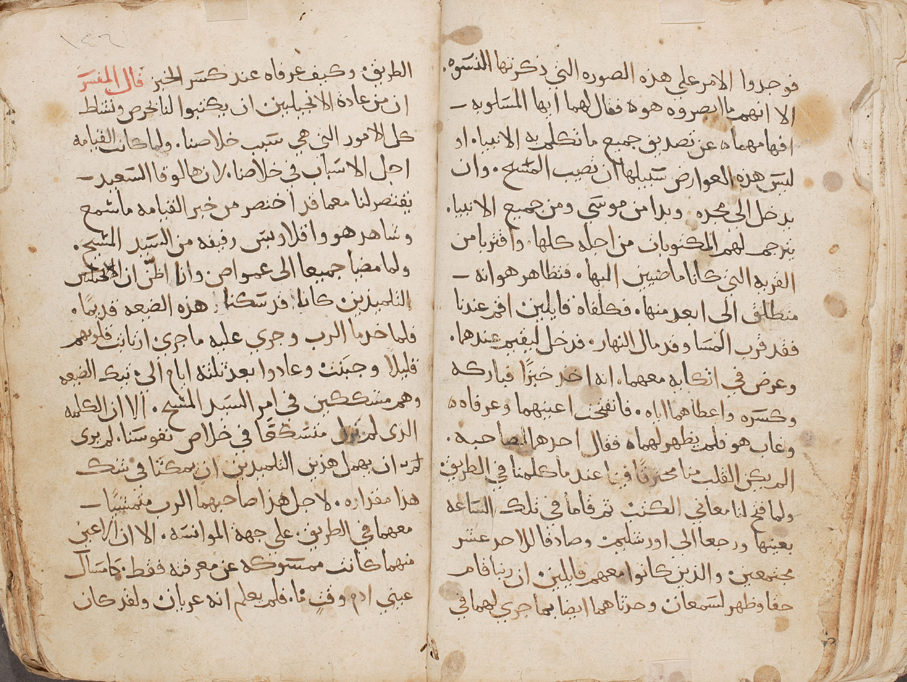 فوجدوا الامر على هذه الصوره التي ذكرتها النسوه.
الا انهم ما ابصروه هوه فقال لهما ايها المسلوبه
افهامهما عن تصديق جميع ما تكلم به الانبياء او
ليس هذه العوارض سبيلها ان تصيب المسيح. وان
يدخل الى مجده. وبدا من موسى ومن جميع الانبيا.
يترجم لهم المكتوبات من اجله كلها. واقتربا من
القريه التي كانا ماضيين اليها. فتظاهر هو انه
منطلق الى ابعد منها. فكلفاه قايلين اقم عندنا
فقد قرب المسا وقد مال النهار. فدخل ليقيم عندهما.
وعرض في اتكايه معهما. انه اخد خبزا فباركه
وكسره واعطاهما اياه. فانفتحت اعينهما وعرفاه
وغاب هو فلم يظهر لهما فقال احدهما لصاحبه.
الم يكن القلب منا محترقا فينا عند ما كلمنا في الطريق
ولما فتح لنا معاني الكتب ثم قاما في تلك الساعه
بعينها ورجعا الى اورشليم. وصادفا للاحد عشر
مجتمعين. والذين كانوا معهم قايلين ان ربنا قام
حقا وظهر لسمعان وحدثاهما ايضا بما جرى لهما في
١٤٦
الطريق. وكيف عرفاه عند كسر الخبز قال المفسر
ان من عادة الانجيليين ان يكتبوا لنا بحرص ونشاط
كل الامور التي هي سبب خلاصنا. ولما كانت القيامه
اجل الاسباب في خلاصنا. لان هالوقا السعيد
يقتصر لنا معما قد اختصر من خبر القيامه ما سمع
وشاهد هو واقلاوبس رفيقه من السيد المسيح.
ولما مضيا جميعا الى عمواص. وانا اظن ان
التلميذين كانا قد سكنا هذه الضيعه قديما.
فلما خدما الرب وجرى عليه ما جرى ارتابت قلوبهم
قليلا وجبنت وعادوا بعد ثلثه ايام الى تيك الضيعه
وهم متشككين في امر السيد المسيح. الا ان الكلمه
الذى لم يزل متشفقا في خلاص نفوسنا. لم يرى
ان يهمل هذين التلميذين ان يمكثا في شك
هذا مقداره. لاجل هذا صاحبهما الرب متمشيا
معهما في الطريق. على جهة الموانسه. الا ان اعين
منهما كانت ممسوكه عن معرفته فقط. كامساك
عيني ادم وقت ما. فلم يعلم انه عريان ولقد كان